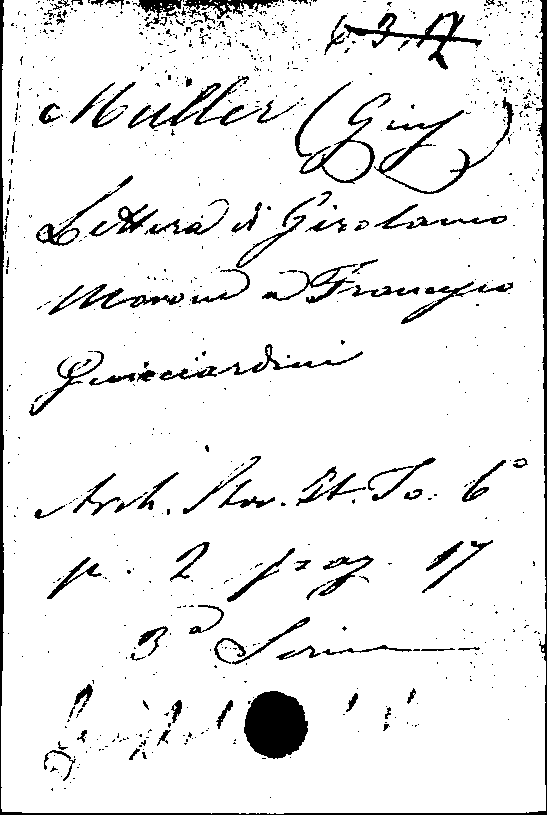 6.3.17
Müller (Gius)
Lettera di Girolamo
Morone a Francesco
Guicciardini
Arch. Stor. It. To. 6°
p. 2 pag. 17
3a Serie